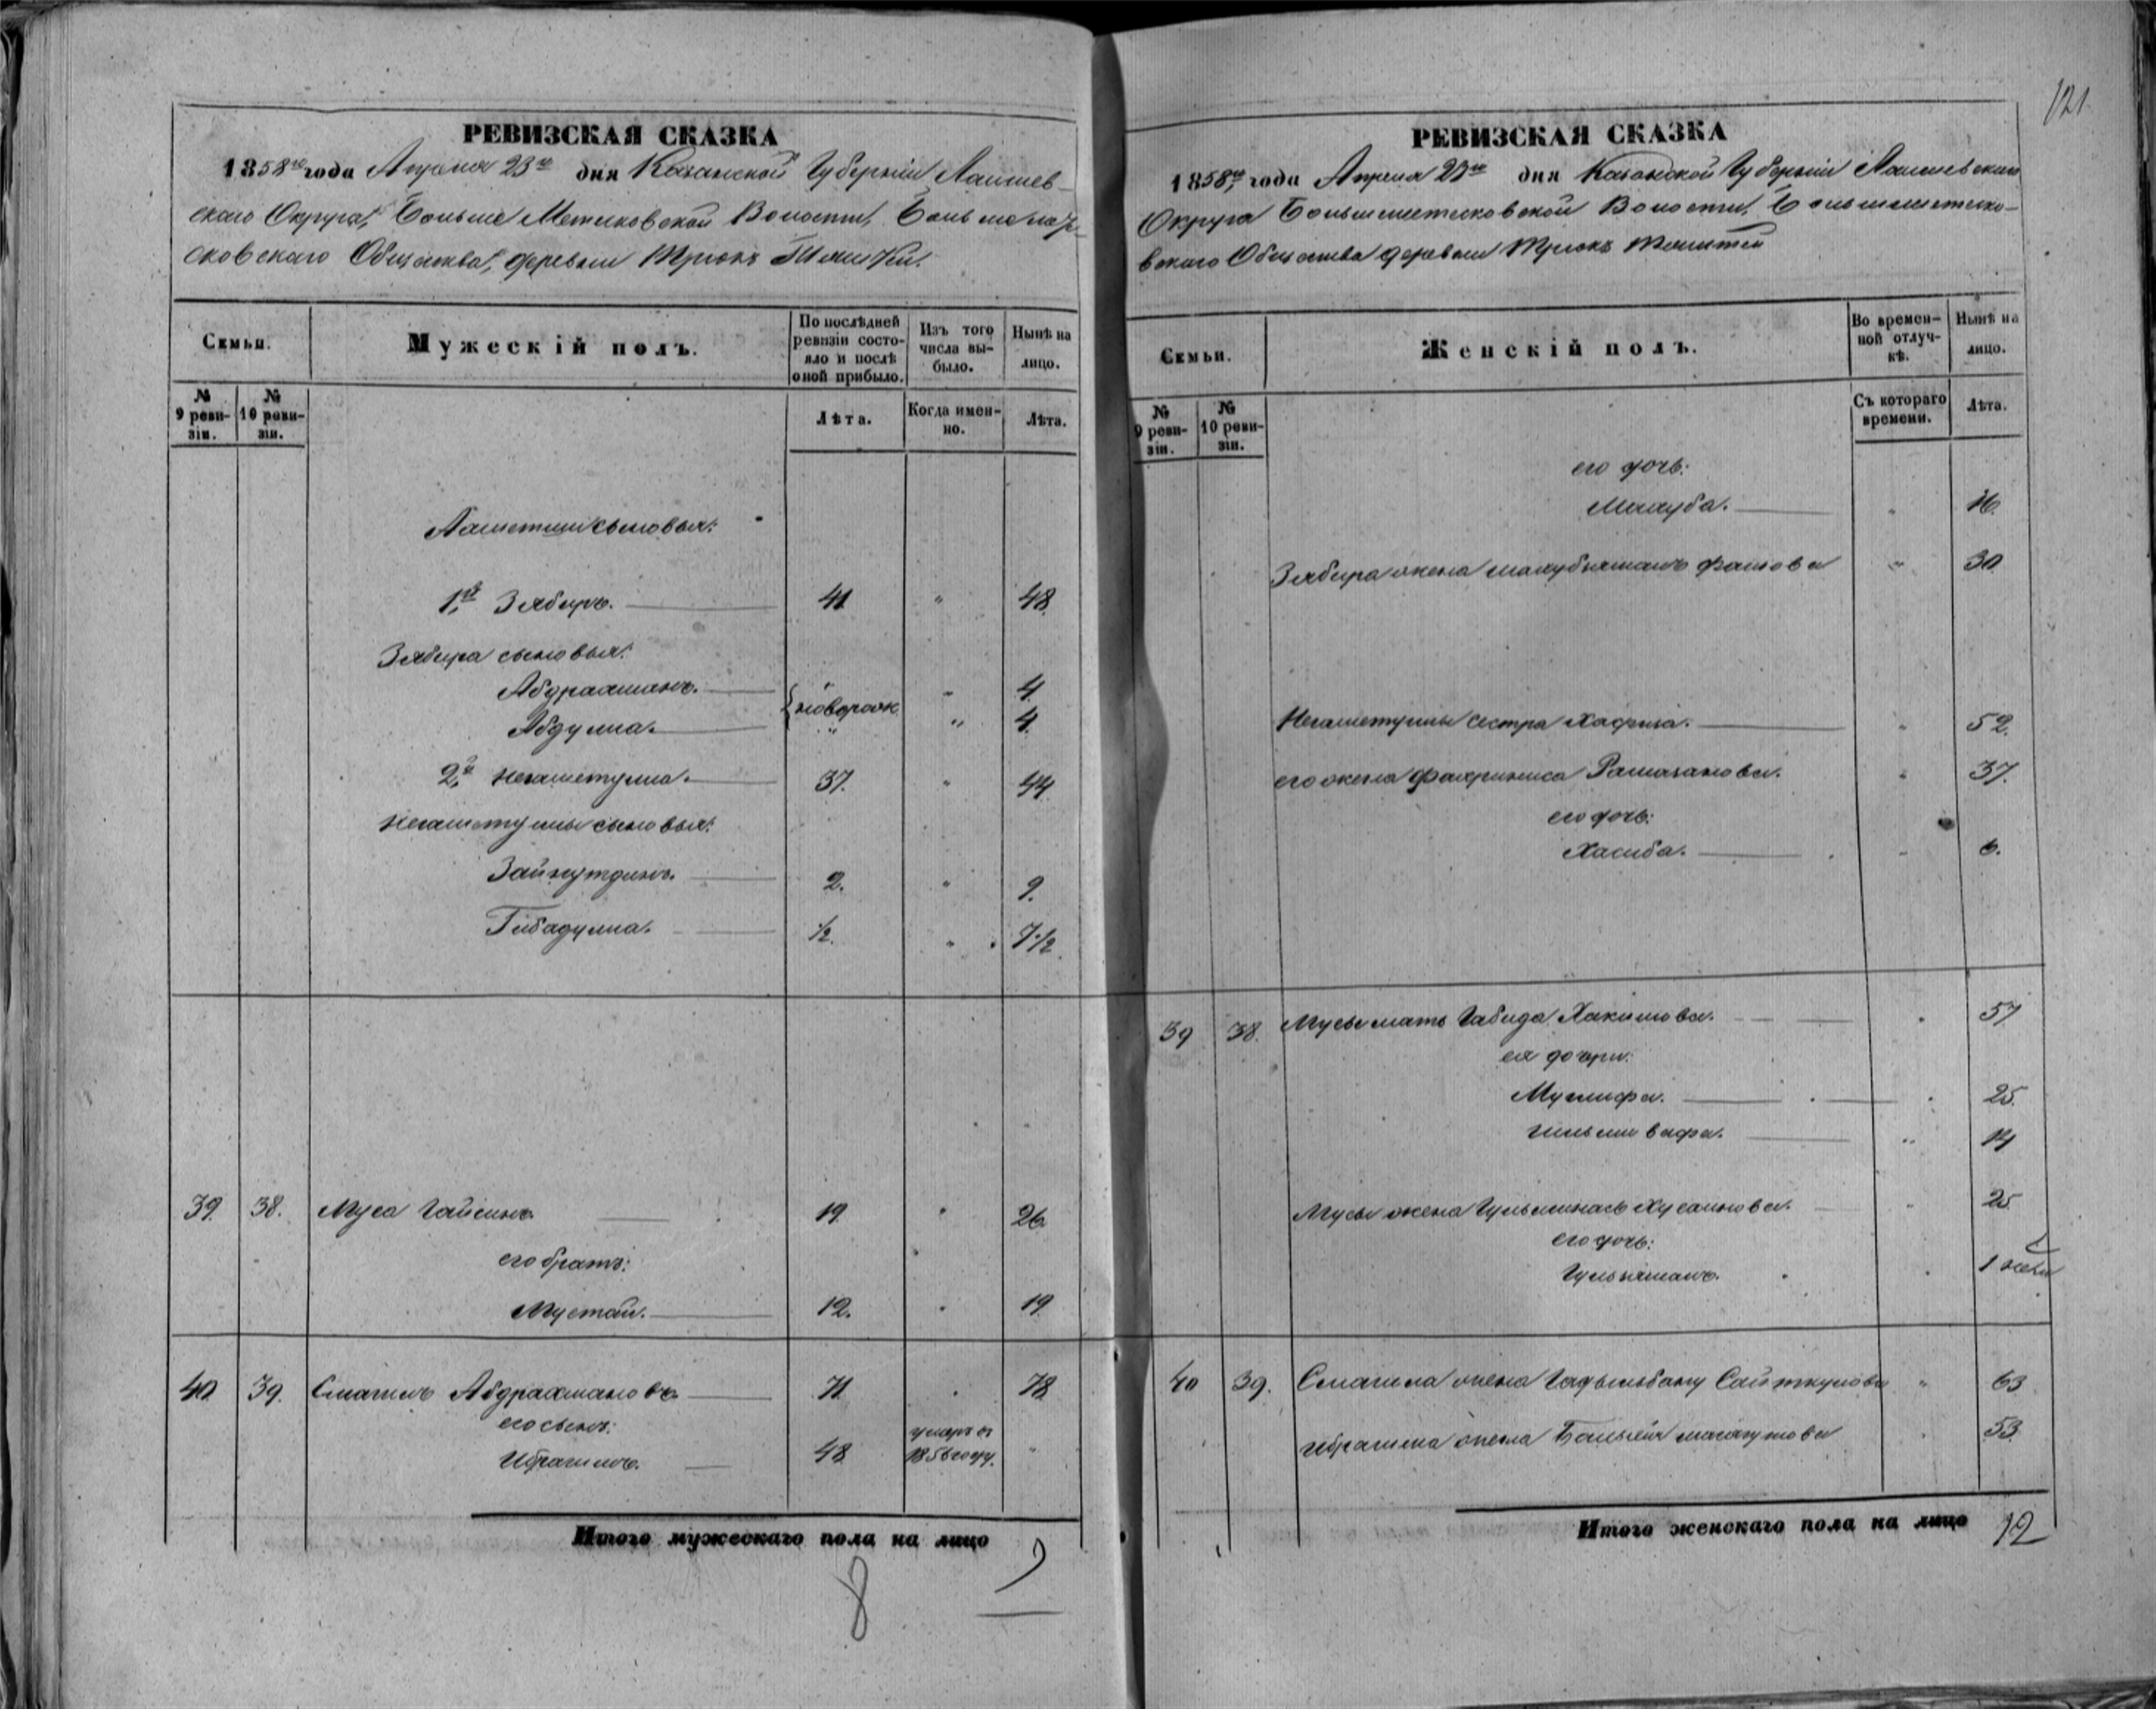 121.
РЕВИЗСКАЯ СКАЗКА
1858го года Апреля 23го дня Казанской Губернiи Лаишев-
скаго Округа, Больше Метесковской Волости,
сковскаго Общества, деревни Трюкъ Тямти
Семьи.
Мужескiй полъ.
По послѣдней ревизiи состояло и послѣ оной прибыло.
Изъ того числа выбыло.
Нынѣ на лицо.
№ 9 ревизiи.
№ 10 ревизiи.
Лѣта.
Когда именно.
Лѣта.
сыновья:
1й Зябиръ. 41 " 48.
Зябира сыновья:
Абдрахманъ. новорож. " 4.
Абдулла. " " 4.
2й Негаметулла. 37. " 44
Негаметуллы сыновья:
Зайнутдинъ. 2. " 9.
Гибадулла. ½. " 7½.
39. 38. Муса Гайсинъ. 19. " 26.
его братъ:
Мустай. 12. " 19
40. 39. Смагилъ Абдрахмановъ. 71. " 78.
его сынъ:
Ибрагимъ. 48 умеръ въ 1856 году. "
Итого мужескаго пола на лицо
8
РЕВИЗСКАЯ СКАЗКА
1858го года Апреля 23го дня Казанской Губернiи Лаишевскаго
Округа Большеметесковской Волости, Большеметеско-
вскаго Общества деревни Трюкъ Тямти
Семьи.
Женскiй полъ.
Во временной отлучкѣ.
Нынѣ на лицо.
№ 9 ревизiи.
№ 10 ревизiи.
Съ котораго времени.
Лѣта.
его дочь:
Махуба. " 16.
Зябира жена " 30
Негаметуллы сестра Хафиза. " 52.
его жена Фахриниса Рамазанова. " 37.
его дочь:
Хасиба. " 6.
39 38. Мусы мать Габида Хакимова. " 57
ея дочри:
Муглифа. " 25.
" 14
Мусы жена Хусаинова. " 25
его дочь:
Гульямалъ. " 1 нед
40 39. Смагила жена Гадыльбану Сайткулова " 63
Ибрагима жена " 53.
Итого женскаго пола на лицо 12